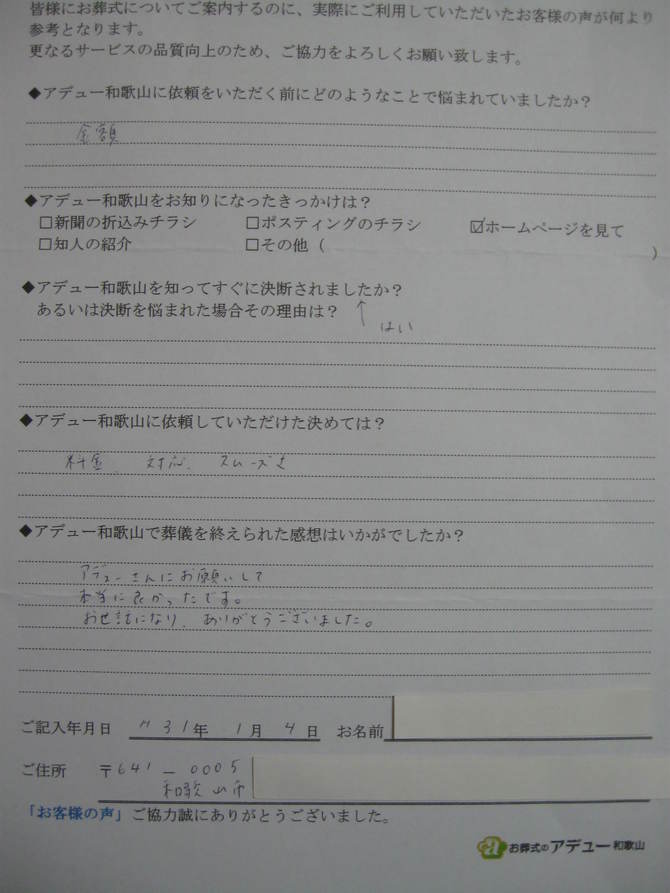 皆様にお葬式についてご案内するのに、実際にご利用していただいたお客様の声が何より
参考となります。
更なるサービスの品質向上のため、ご協力をよろしくお願い致します。
◆アデュー和歌山に依頼をいただく前にどのようなことで悩まれていましたか？
金額
◆アデュー和歌山をお知りになったきっかけは？
□新聞の折込みチラシ □ポスティングのチラシ ☑ホームページを見て
□知人の紹介 □その他（ ）
◆アデュー和歌山を知ってすぐに決断されましたか？
あるいは決断を悩まれた場合その理由は？ ↑
はい
◆アデュー和歌山に依頼していただけた決めては？
料金、対応、スムーズさ
◆アデュー和歌山で葬儀を終えられた感想はいかがでしたか？
アデューさんにお願いして
本当に良かったです。
お世話になり、ありがとうございました。
ご記入年月日 H31年 1月 4日 お名前
ご住所 〒641-0005
和歌山市
「お客様の声」ご協力誠にありがとうございました。
a お葬式のアデュー和歌山